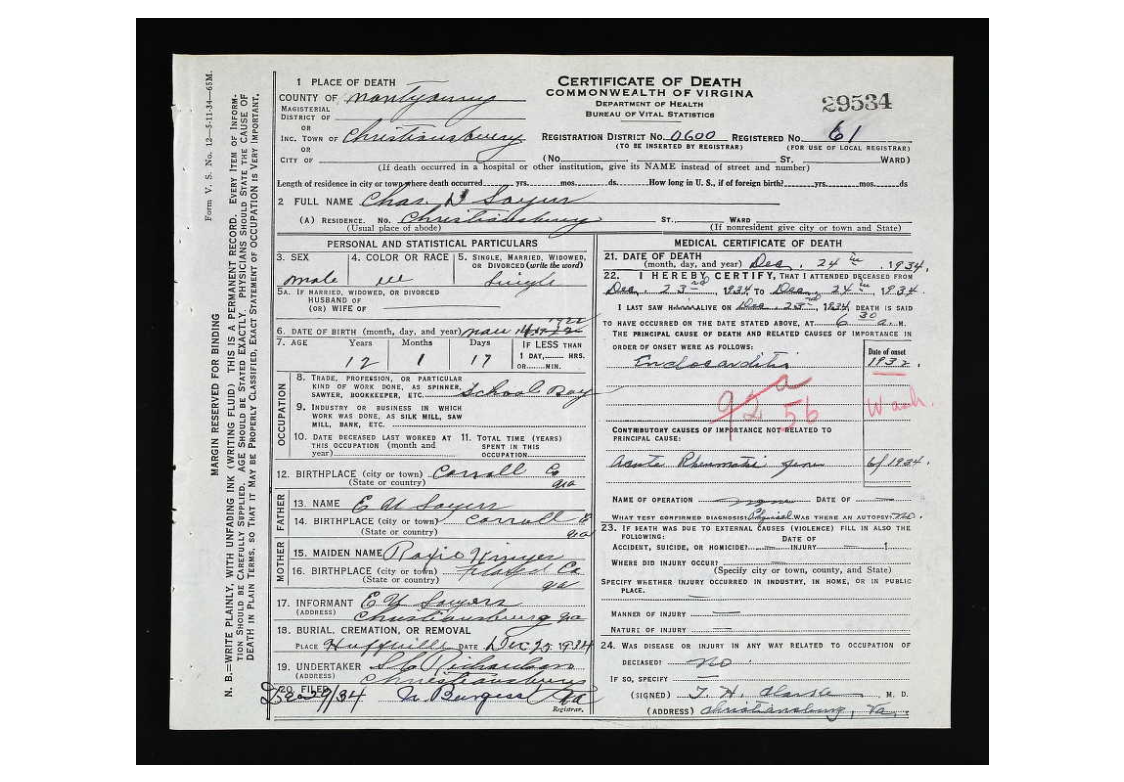 Form V. S. No. 12—5-11-34—65M.
MARGIN RESERVED FOR BINDING
N. B.=WRITE PLAINLY, WITH UNFADING INK (WRITING FLUID) THIS IS A PERMANENT RECORD. EVERY ITEM OF INFORM-
TION SHOULD BE CAREFULLY SUPPLIED. AGE SHOULD BE STATED EXACTLY. PHYSICIANS SHOULD STATE THE CAUSE OF
DEATH IN PLAIN TERMS, SO THAT IT MAY BE PROPERLY CLASSIFIED, EXACT STATEMENT OF OCCUPATION IS VERY IMPORTANT.
CERTIFICATE OF DEATH
COMMONWEALTH OF VIRGINA
DEPARTMENT OF HEALTH
BUREAU OF VITAL STATISTICS
29534
1 PLACE OF DEATH
COUNTY OF Montgomery
MAGISTERIAL
DISTRICT OF
OR
INC. TOWN OF Christiansburg REGISTRATION DISTRICT NO. 0600 REGISTERED NO. 61
(TO BE INSERTED BY REGISTRAR) (FOR USE OF LOCAL REGISTRAR)
OR
CITY OF (No. ST. WARD)
(If death occurred in a hospital or other institution, give its NAME instead of street and number)
Length of residence in city or town where death occurred yrs. mos. ds. How long in U. S., if of foreign birth? yrs. mos. ds
2 FULL NAME Chas.
(A) RESIDENCE. NO. Christiansburg ST., WARD
(Usual place of abode) (If nonresident give city or town and State)
PERSONAL AND STATISTICAL PARTICULARS
3. SEX 4. COLOR OR RACE 5. SINGLE, MARRIED, WIDOWED,
OR DIVORCED (write the word)
male Single
5A. IF MARRIED, WIDOWED, OR DIVORCED
HUSBAND OF
(OR) WIFE OF
6. DATE OF BIRTH (month, day, and year) 1922
7. AGE Years Months Days IF LESS THAN
1 DAY, HRS.
OR MIN.
12 1 17
OCCUPATION
8. TRADE, PROFESSION, OR PARTICULAR
KIND OF WORK DONE, AS SPINNER,
SAWYER, BOOKKEEPER, ETC. School Boy
9. INDUSTRY OR BUSINESS IN WHICH
WORK WAS DONE, AS SILK MILL, SAW
MILL, BANK, ETC.
10. DATE DECEASED LAST WORKED AT
THIS OCCUPATION (month and
year)
11. TOTAL TIME (YEARS)
SPENT IN THIS
OCCUPATION
12. BIRTHPLACE (city or town) Carroll Co
(State or country) Va
FATHER
13. NAME E
14. BIRTHPLACE (city or town) Carroll
(State or country) Va
MOTHER
15. MAIDEN NAME
16. BIRTHPLACE (city or town) Co
(State or country) Va
17. INFORMANT E
(ADDRESS) Christiansburg Va
18. BURIAL, CREMATION, OR REMOVAL
PLACE Huffville DATE Dec 25, 1934
19. UNDERTAKER Richardson
(ADDRESS) Christiansburg
20. FILED Dec 29/34 Burgess
Registrar.
MEDICAL CERTIFICATE OF DEATH
21. DATE OF DEATH
(month, day, and year) Dec. 24 th, 1934.
22. I HEREBY CERTIFY, THAT I ATTENDED DECEASED FROM
Dec. 23 rd, 1934 TO Dec. 24 th, 1934.
I LAST SAW HIM ALIVE ON Dec. 23 rd, 1934, DEATH IS SAID
TO HAVE OCCURRED ON THE DATE STATED ABOVE, AT 6 30 a. M.
THE PRINCIPAL CAUSE OF DEATH AND RELATED CAUSES OF IMPORTANCE IN
ORDER OF ONSET WERE AS FOLLOWS:
Date of onset
Endocarditis 1932.
92 a
56
Wash.
CONTRIBUTORY CAUSES OF IMPORTANCE NOT RELATED TO
PRINCIPAL CAUSE:
Acute Rheumatic fever 6/1934.
NAME OF OPERATION none DATE OF
WHAT TEST CONFIRMED DIAGNOSIS? Physical WAS THERE AN AUTOPSY? no.
23. IF DEATH WAS DUE TO EXTERNAL CAUSES (VIOLENCE) FILL IN ALSO THE
FOLLOWING: DATE OF
ACCIDENT, SUICIDE, OR HOMICIDE? INJURY
WHERE DID INJURY OCCUR?
(Specify city or town, county, and State)
SPECIFY WHETHER INJURY OCCURRED IN INDUSTRY, IN HOME, OR IN PUBLIC
PLACE.
MANNER OF INJURY
NATURE OF INJURY
24. WAS DISEASE OR INJURY IN ANY WAY RELATED TO OCCUPATION OF
DECEASED? no
IF SO, SPECIFY
(SIGNED) T. H. M. D.
(ADDRESS) Christiansburg, Va.